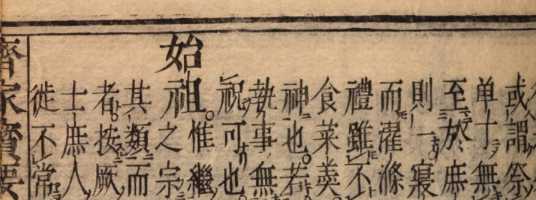 或謂祭
单十無
至於庶
則一寢
而濯滌
禮雖不
食菜羮
神也若
執事無
祝可也
始祖惟繼
祖之宗
其類而
者按厥
士庶人
徙不常
齊家寳要